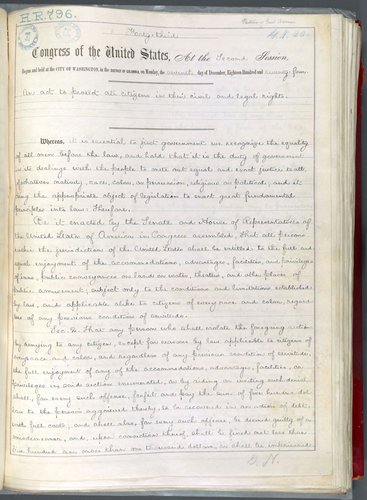 H.R. 796.
Forty-third
Congress of the United States, At the Second Session,
Begun and held at the CITY OF WASHINGTON, in the DISTRICT OF COLUMBIA, on Monday, the seventh day of December, Eighteen Hundred and seventy-four.
An act to protect all citizens in their civil and legal rights.
Whereas, it is essential to just government we recognize the equality
of all men before the law, and hold that it is the duty of government
in its dealings with the people to mete out equal and exact justice to all,
of whatever nativity, race, color, or persuasion, religious or political; and it
being the appropriate object of legislation to enact great fundamental
principles into law: Therefore,
Be it enacted by the Senate and House of Representatives of
the United States of America in Congress assembled, That all persons
within the jurisdiction of the United States shall be entitled to the full and
equal enjoyment of the accommodations, advantages, facilities, and privileges
of inns, public conveyances on land or water, theaters, and other places of
public amusement; subject only to the conditions and limitations established
by law, and applicable alike to citizens of every race and color, regard
less of any previous condition of servitude.
Sec. 2. That any person who shall violate the foregoing section
by denying to any citizen, except for reasons by law applicable to citizens of
every race and color, and regardless of any previous condition of servitude,
the full enjoyment of any of the accommodations, advantages, facilities, or
privileges in said section enumerated, or by aiding or inciting such denial,
shall, for every such offense, forfeit and pay the sum of five hundred dol
lars to the person aggrieved thereby, to be recovered in an action of debt,
with full costs; and shall also, for every such offense, be deemed guilty of a
misdemeanor, and, upon conviction thereof, shall be fined not less than
five hundred nor more than one thousand dollars, or shall be imprisoned